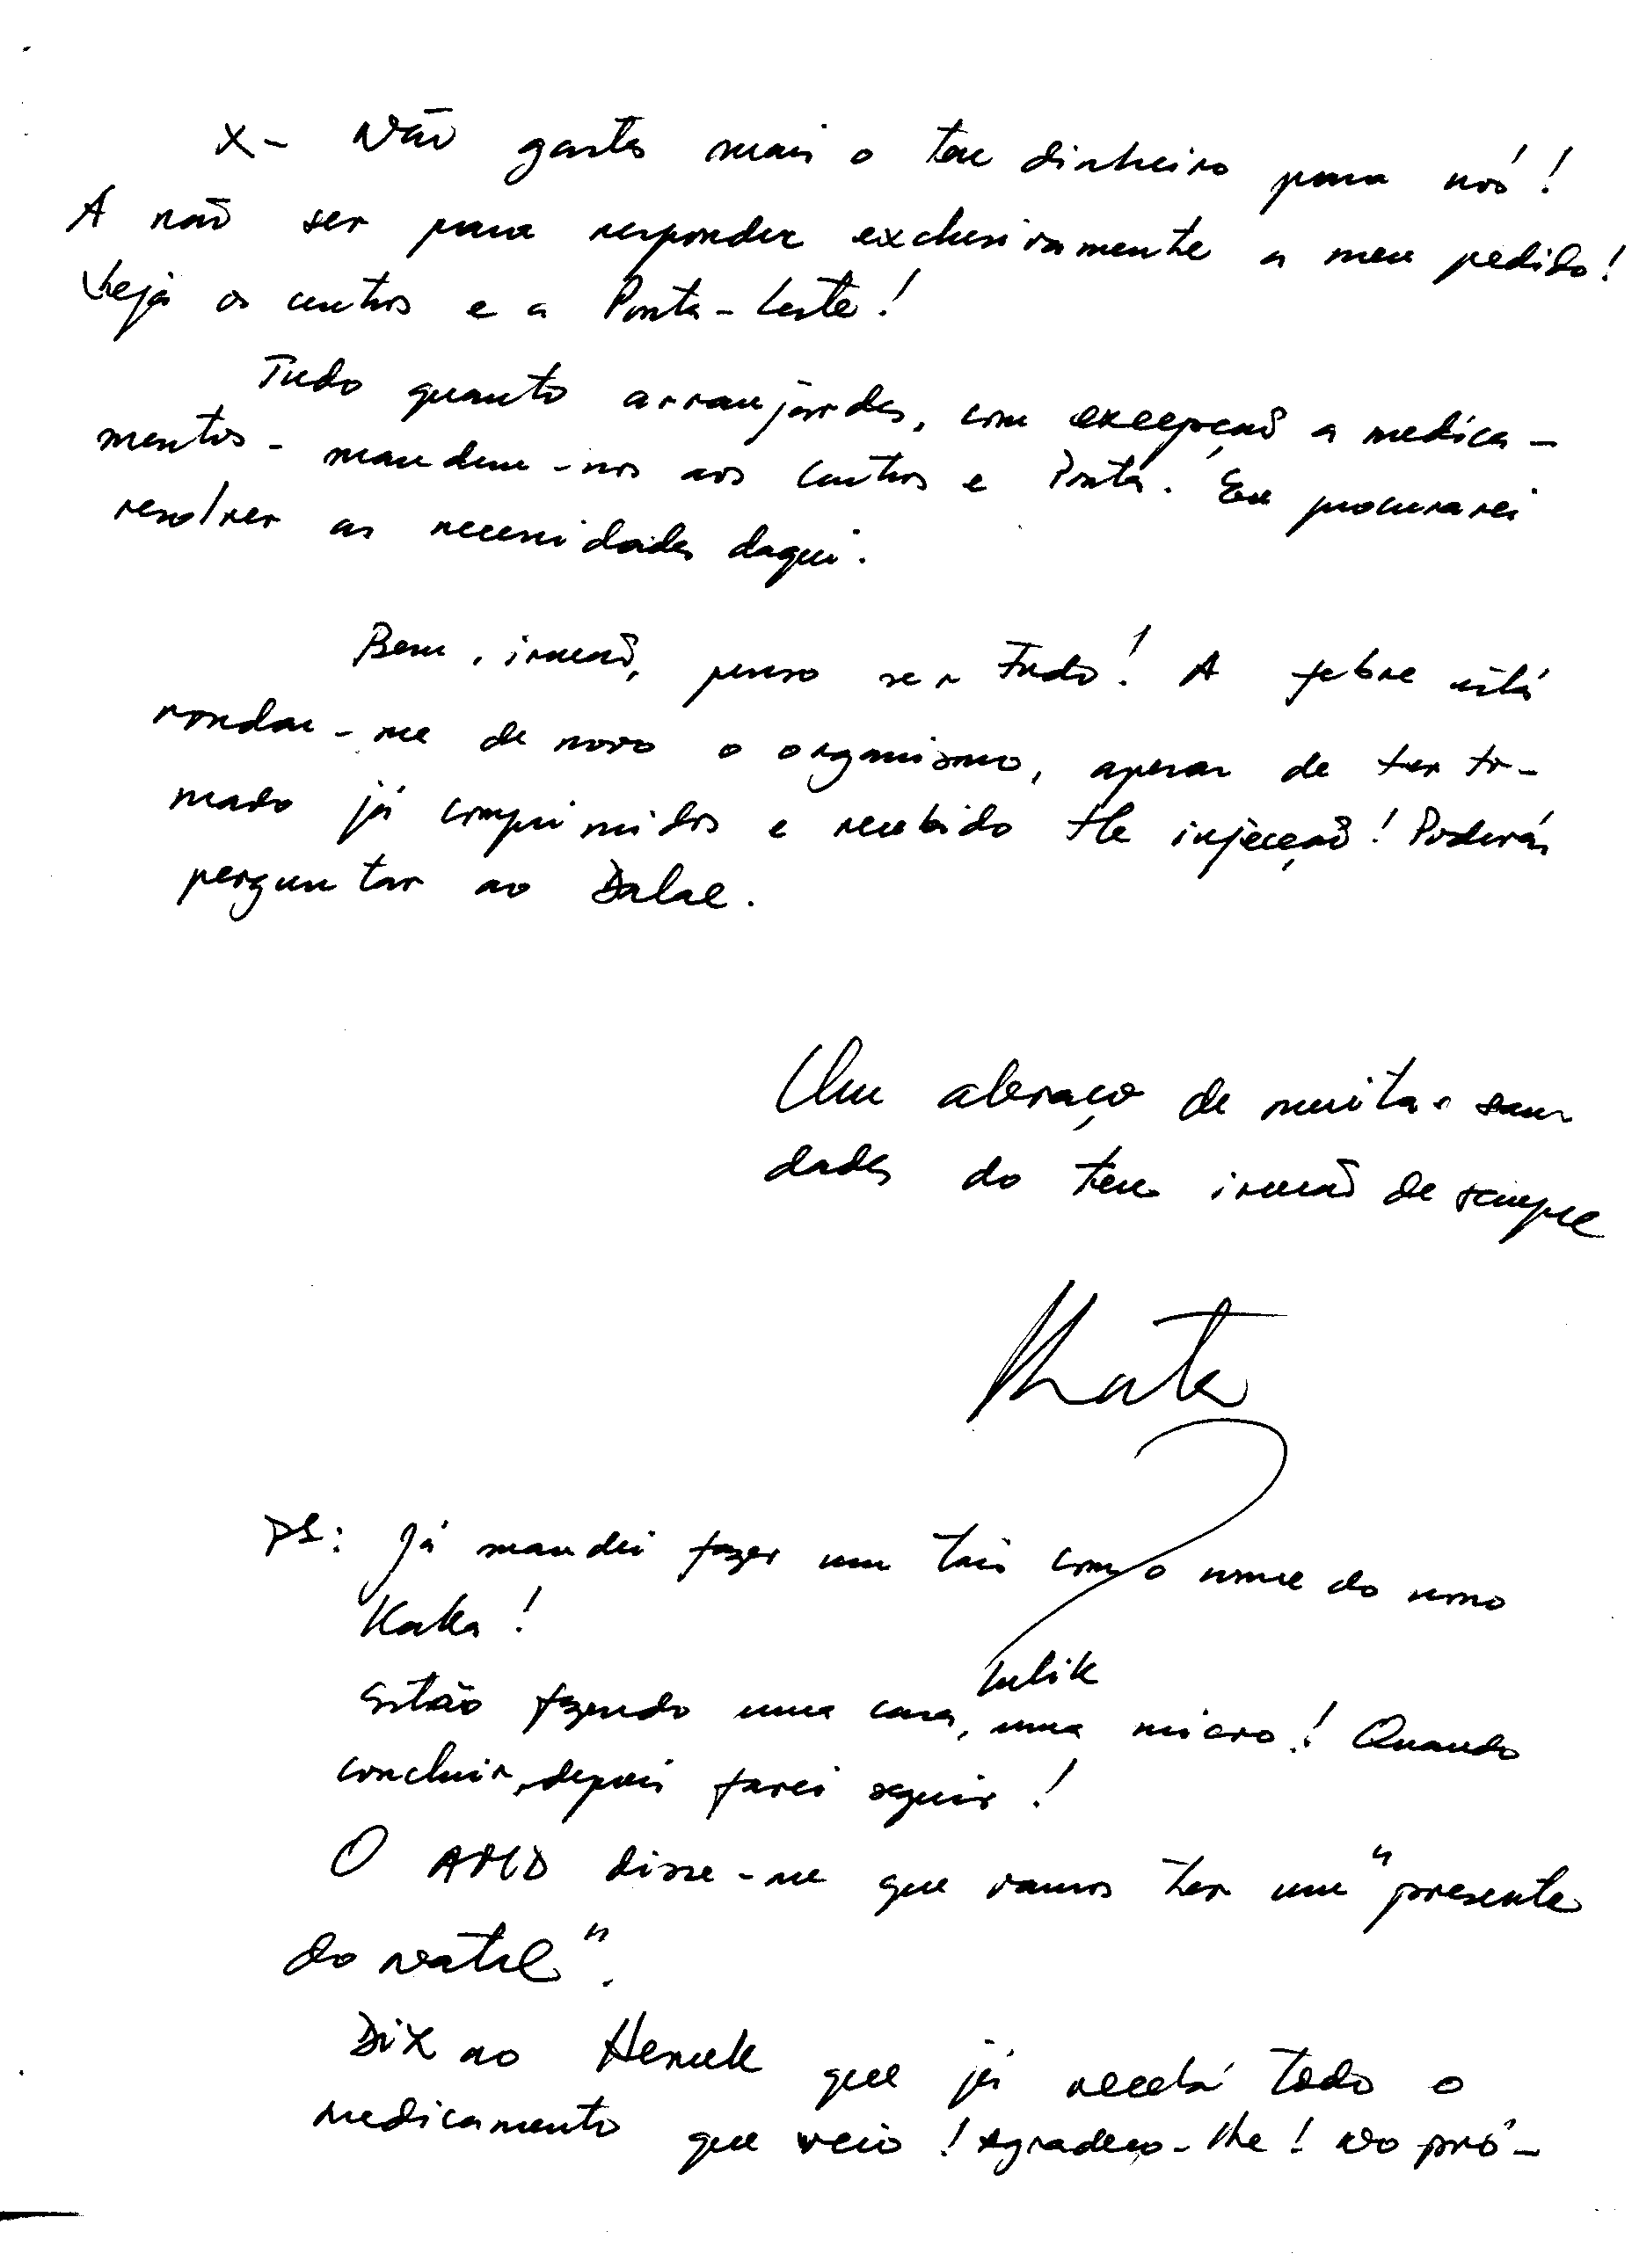 X- Não gastes mais o teu dinheiro para nós!
A não ser para responder exclusivamente a meu pedido!
Veja os centros e a Ponta-Leste!
Tudo quanto arranjardes, com excepção a medica-
mentos - mandem-nos aos Centros e Ponta. Eu procurarei
resolver as necessidades daqui.
Bem, irmão, penso ser tudo! A febre está
rondar-me de novo o organismo, apesar de ter to-
mado já comprimidos e recebido injecção! Poderás
perguntar ao
Um abraço de muitas sau
dades do teu irmão de sempre
PS: Já mandei fazer um tais com o nome do
Kaka!
Estão fazendo uma casa, lulik
uma micro! Quando
concluir, depois farei seguir!
O disse-me que vamos ter um "presente
do natal".
Diz ao que já recebi todo o
medicamento que veio! Agradeço-lhe! No pró-